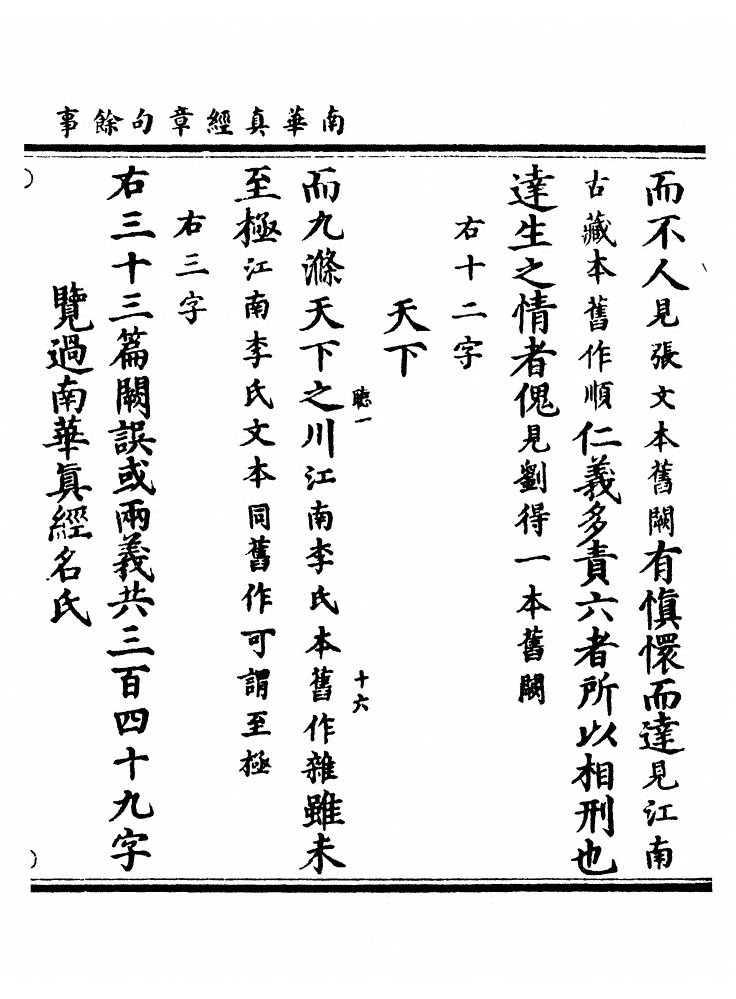 南華真經章句餘事
而不人見張文本舊闕有慎懁而達見江南
古藏本舊作順仁義多責六者所以相刑也
達生之情者傀見劉得一本舊闕
右十二字
天下
聽一
十六
而九滌天下之川江南李氏本舊作雜雖未
至極江南李氏文本同舊作可謂至極
右三字
右三十三篇闕誤或兩義共三百四十九字
覽過南華真經名氏